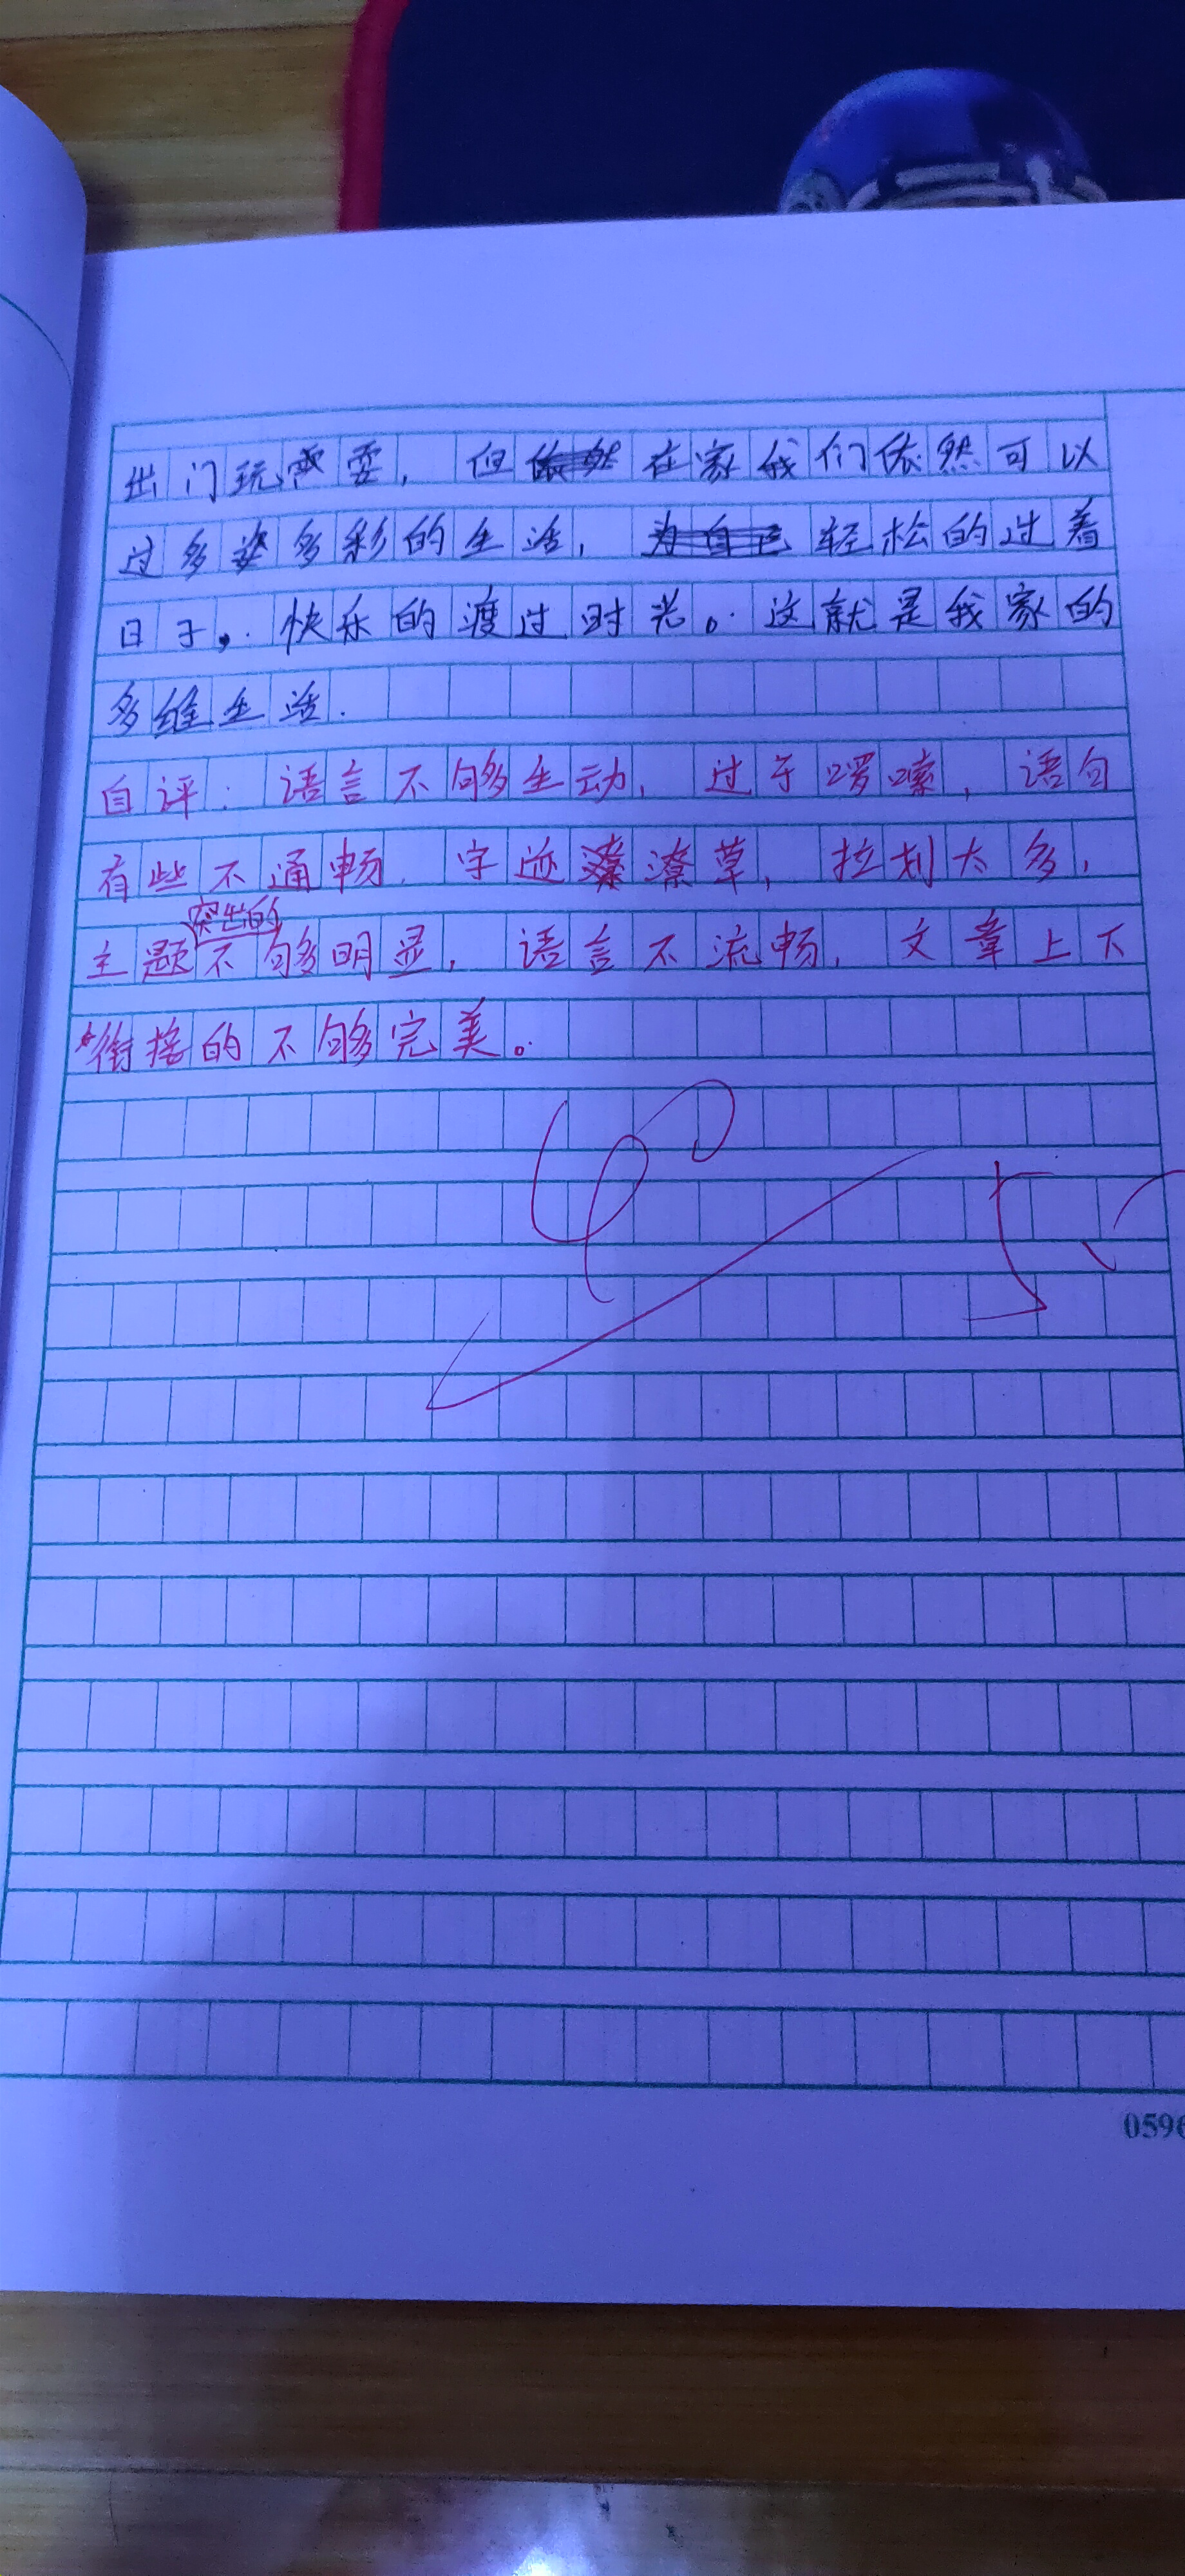 出门玩耍，但在家我们依然可以
过多姿多彩的生活，轻松的过着
日子，快乐的渡过时光。这就是我家的
多维生活.
自评：语言不够生动，过于啰嗦，语句
有些不通畅. 字迹潦草，拉划太多，
突出的
主题不够明显，语言不流畅，文章上下
衔接的不够完美。
0596